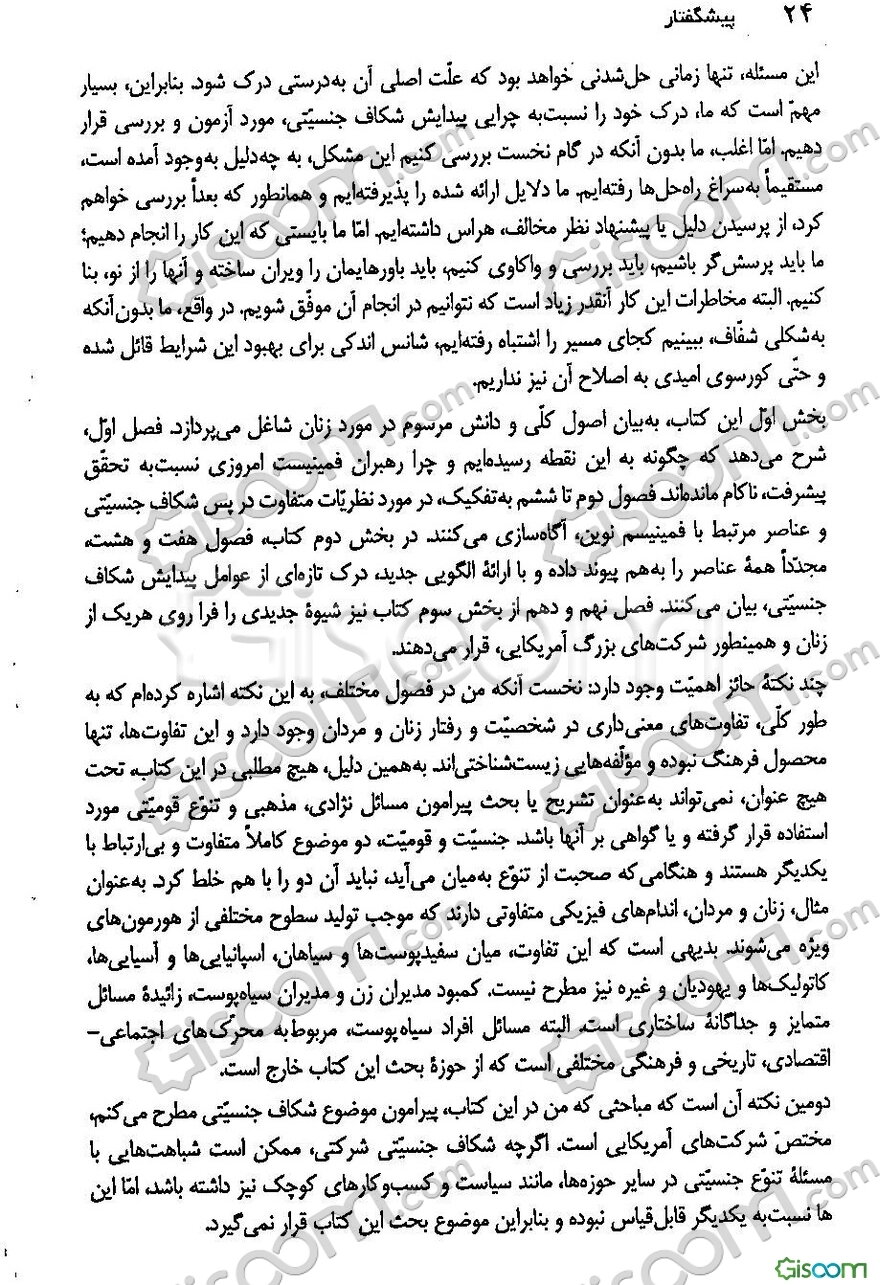 ۲۴ پیشگفتار
این مسئله، تنها زمانی حل‌شدنی خواهد بود که علّت اصلی آن به‌درستی درک شود. بنابراین، بسیار
مهمّ است که ما، درک خود را نسبت‌به چرایی پیدایش شکاف جنسیّتی، مورد آزمون و بررسی قرار
دهیم. امّا اغلب، ما بدون آنکه در گام نخست بررسی کنیم این مشکل، به چه‌دلیل به‌وجود آمده است،
مستقیماً به‌سراغ راه‌حل‌ها رفته‌ایم. ما دلایل ارائه شده را پذیرفته‌ایم و همانطور که بعداً بررسی خواهم
کرد، از پرسیدن دلیل یا پیشنهاد نظر مخالف، هراس داشته‌ایم. امّا ما بایستی که این کار را انجام دهیم؛
ما باید پرسش‌گر باشیم، باید بررسی و واکاوی کنیم، باید باورهایمان را ویران ساخته و آنها را از نو، بنا
کنیم. البته مخاطرات این کار آنقدر زیاد است که نتوانیم در انجام آن موفّق شویم. در واقع، ما بدون آنکه
به‌شکلی شفّاف، ببینیم کجای مسیر را اشتباه رفته‌ایم، شانس اندکی برای بهبود این شرایط قائل شده
و حتّی کورسوی امیدی به اصلاح آن نیز نداریم.
بخش اوّل این کتاب، به‌بیان اصول کلّی و دانش مرسوم در مورد زنان شاغل می‌پردازد. فصل اوّل،
شرح می‌دهد که چگونه به این نقطه رسیده‌ایم و چرا رهبران فمینیست امروزی نسبت‌به تحقّق
پیشرفت، ناکام مانده‌اند. فصول دوم تا ششم به‌تفکیک، در مورد نظریّات متفاوت در پس شکاف جنسیّتی
و عناصر مرتبط با فمینیسم نوین، آگاه‌سازی می‌کنند. در بخش دوم کتاب، فصول هفت و هشت،
مجدّداً همهٔ عناصر را به‌هم پیوند داده و با ارائهٔ الگویی جدید، درک تازه‌ای از عوامل پیدایش شکاف
جنسیّتی، بیان می‌کنند. فصل نهم و دهم از بخش سوم کتاب نیز شیوهٔ جدیدی را فرا روی هریک از
زنان و همینطور شرکت‌های بزرگ آمریکایی، قرار می‌دهند.
چند نکتهٔ حائز اهمیّت وجود دارد: نخست آنکه من در فصول مختلف، به این نکته اشاره کرده‌ام که به
طور کلّی، تفاوت‌های معنی‌داری در شخصیّت و رفتار زنان و مردان وجود دارد و این تفاوت‌ها، تنها
محصول فرهنگ نبوده و مؤلّفه‌هایی زیست‌شناختی‌اند. به‌همین دلیل، هیچ مطلبی در این کتاب، تحت
هیچ عنوان، نمی‌تواند به‌عنوان تشریح یا بحث پیرامون مسائل نژادی، مذهبی و تنوّع قومیّتی مورد
استفاده قرار گرفته و یا گواهی بر آنها باشد. جنسیّت و قومیّت، دو موضوع کاملاً متفاوت و بی‌ارتباط با
یکدیگر هستند و هنگامی‌که صحبت از تنوّع به‌میان می‌آید، نباید آن دو را با هم خلط کرد. به‌عنوان
مثال، زنان و مردان، اندام‌های فیزیکی متفاوتی دارند که موجب تولید سطوح مختلفی از هورمون‌های
ویژه می‌شوند. بدیهی است که این تفاوت، میان سفیدپوست‌ها و سیاهان، اسپانیایی‌ها و آسیایی‌ها،
کاتولیک‌ها و یهودیان و غیره نیز مطرح نیست. کمبود مدیران زن و مدیران سیاه‌پوست، زائیدهٔ مسائل
متمایز و جداگانهٔ ساختاری است. البته مسائل افراد سیاه‌پوست، مربوط‌به محرّک‌های اجتماعی–
اقتصادی، تاریخی و فرهنگی مختلفی است که از حوزهٔ بحث این کتاب خارج است.
دومین نکته آن است که مباحثی که من در این کتاب، پیرامون موضوع شکاف جنسیّتی مطرح می‌کنم،
مختصّ شرکت‌های آمریکایی است. اگرچه شکاف جنسیّتی شرکتی، ممکن است شباهت‌هایی با
مسئلهٔ تنوّع جنسیّتی در سایر حوزه‌ها، مانند سیاست و کسب‌وکارهای کوچک نیز داشته باشد، امّا این
ها نسبت‌به یکدیگر قابل‌قیاس نبوده و بنابراین موضوع بحث این کتاب قرار نمی‌گیرد.
Gisoom.com
Gisoom